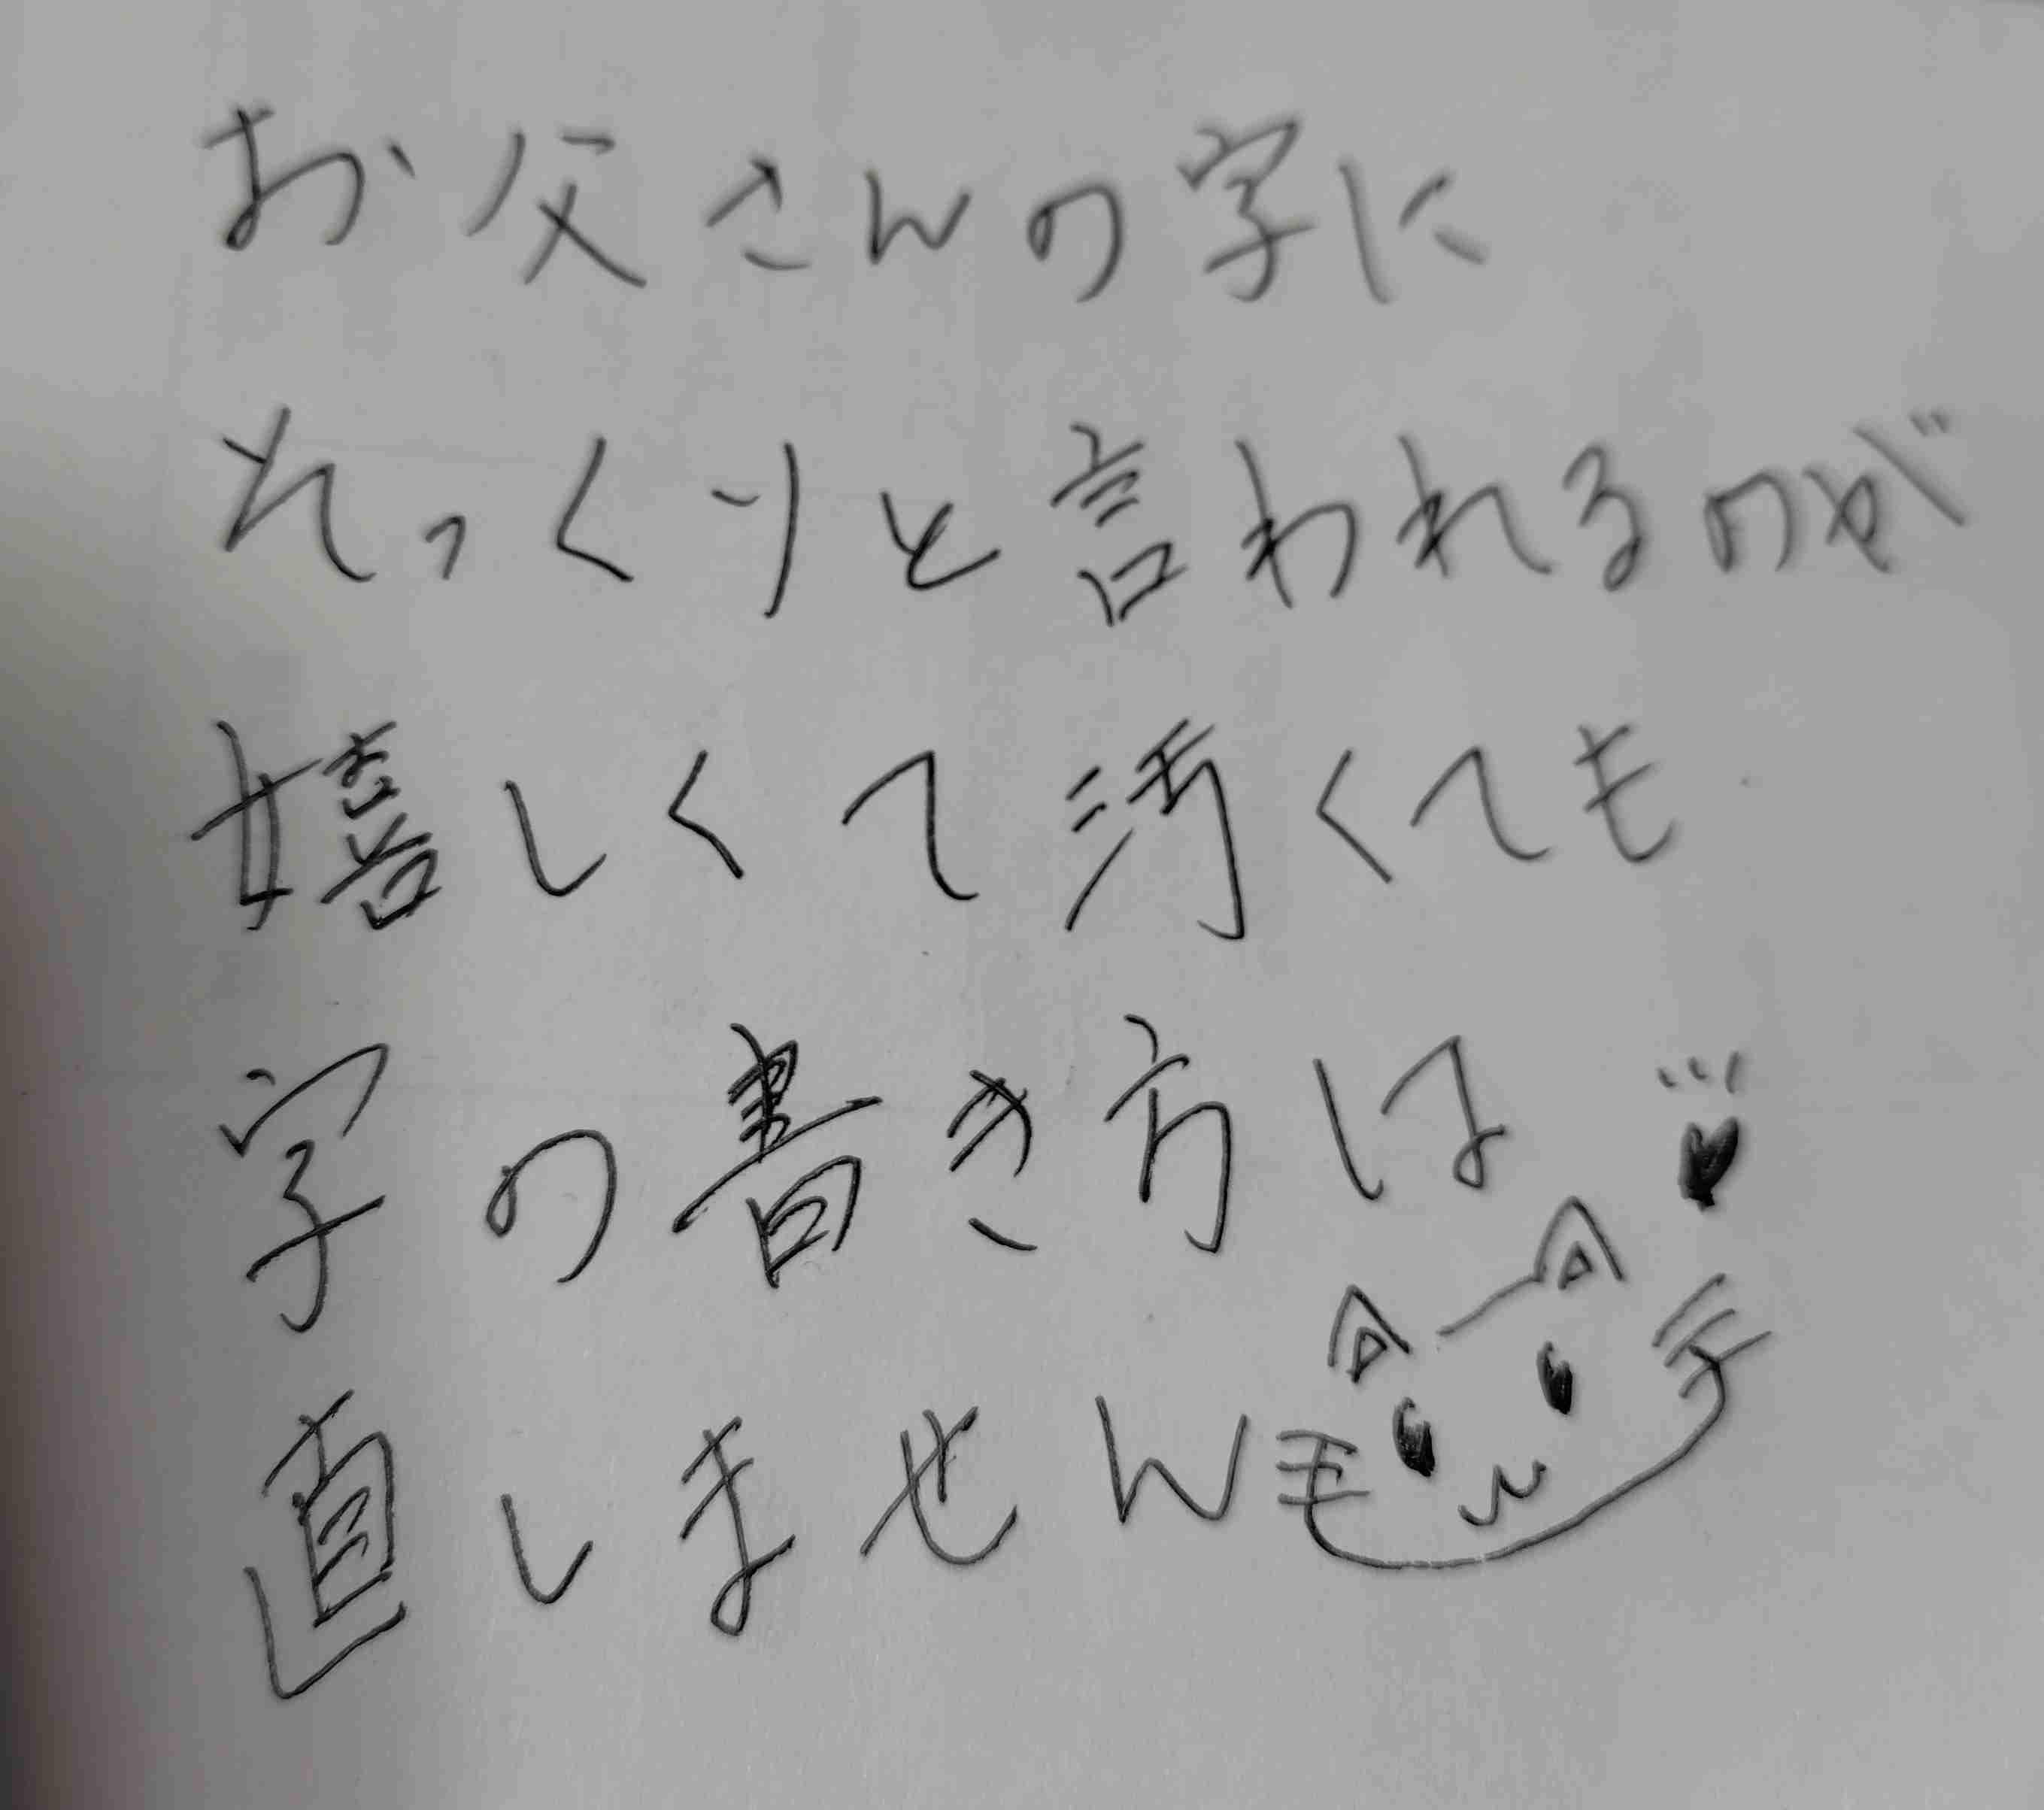 お父さんの字に
そっくりと言われるのが
嬉しくて汚くても
字の書き方は
直しません